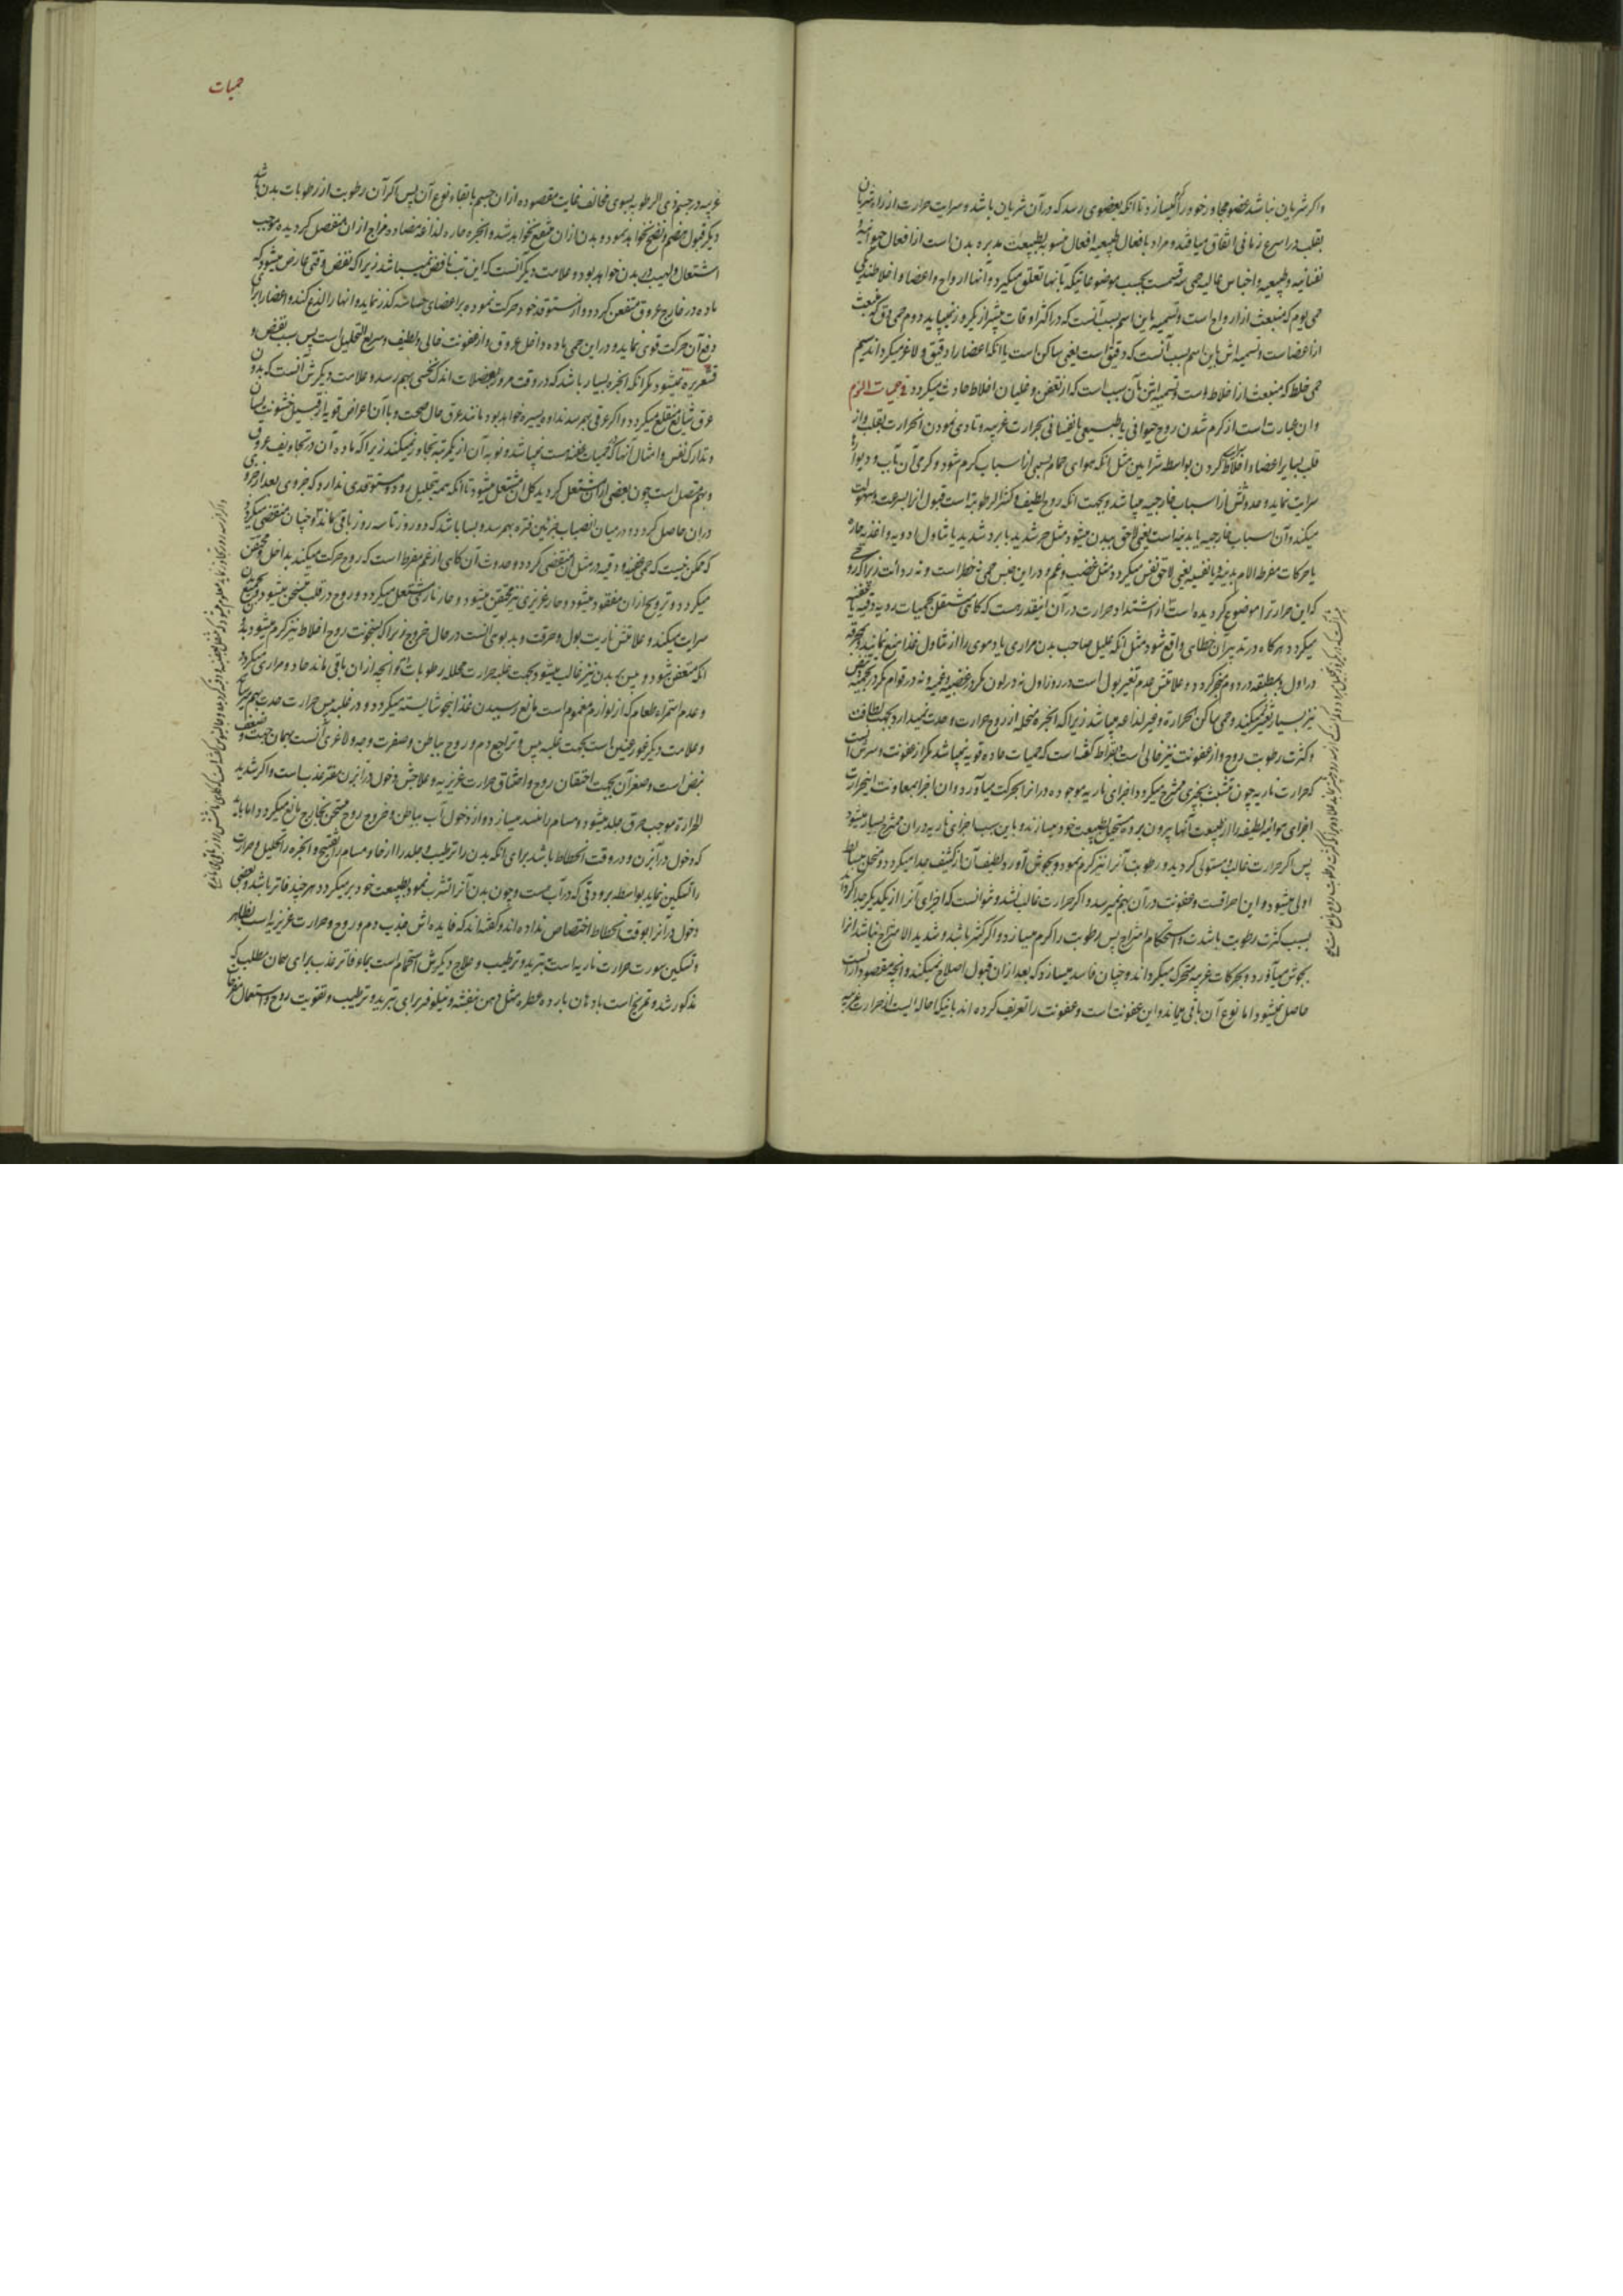 واکر شریان نباشد عضو مجاور خود را کرم میسازد تا انکه بعضوی رسد که در آن شریان باشد و سرایت حرارت از راه شریان
بقلب در اسرع زمانی اتفاق میافتد و مراد بافعال طبیعیه افعال منسوبه بطبیعت مدبره بدن است از افعال حیوانیه و
نفسانیه و طبیعیه و اجناس عالیه حمی سه قسمست بحسب موضوعاتیکه بآنها تعلق میکیرد و آنها ارواح و اعضا و اخلاطند یکی
حمی یوم که منبعث از ارواح است و تسمیه باین اسم بسبب آنست که در اکثر اوقات بیشتر از یکروز نمیپاید دوم حمی دق که منبعث
از اعضا است و تسمیه اش باین اسم بسبب آنست که دقیق است یعنی ساکن است یا انکه اعضا را دقیق و لاغر میکرداند سیم
حمی خلط که منبعث از اخلاط است و تسمیه این بآن سبب است که از تعفن و غلیان اخلاط حادث میکردد حمیات الیوم
وان عبارت است از کرم شدن روح حیوانی یا طبیعی یا نفسانی بحرارت غریبه و تادی نمودن انحرارت بقلب و از
قلب بسایر اعضا و اخلاط بواسطه شرایین مثل انکه هوای حمام بسببی از اسباب کرم شود و کرمی آن بآب و دیوارها
سرایت نماید و حدوثش از اسباب خارجیه میباشد و بجهت انکه روح لطیف و کثیر الرطوبة است قبول انرا بسرعت و سهولت
میکند و آن اسباب خارجیه یا بدنیه است یعنی لاحق ببدن میشود مثل حر شدید یا برد شدید یا تناول ادویه و اغذیه حاره
یا حرکات مفرط الالم بدنیه و یا نفسیه یعنی لاحق نفس میکردد مثل غضب و غم و در این جنس حمی نه خطر است و نه ردائت زیرا که روحی
که این حرارترا موضوع کردیده است از اشتداد حرارت در آن اینقدر هست که کاهی منتقل بحمیات ردیه دقیه یا عفنیه
میکردد هرکاه در تدبیر آن خطائی واقع شود مثل انکه علیل صاحب بدن مراری یا دموی را از تناول غذا منع نمایند و بمحرقه
در اول و بمطبقه در دوم منجر کردد و علامتش عدم تغیر بول است در روز اول نه در لون مکر در غضبیه و غمیه و نه در قوام مکر در تخمیه
نیز بسیار تغیر نمیکند و حمی ساکن الحرارة و غیر لذاعه میباشد زیرا که انجره منحله از روح حرارت و حدت نمیدارد بجهت لطافت
و کثرت رطوبت روح و از عفونت نیز خالی است
که حرارت ناریه چون متشبث بچیزی ممتزج میکردد اجزای ناریه موجوده در انرا بحرکت میآورد وان اجزا بمعاونت اینحرارت
اجزای هوائیه لطیفه را از طبیعت آنها بیرون برده مستحیل بطبیعت خود میسازند و باین سبب اجزای ناریه در ان ممتزج بسیار میشود
پس اکر حرارت غالب و مستولی کردید و رطوبت آنرا نیز کرم نمود و بجوش آورد لطیف آن از کثیف جدا میکردد
اولی میشود و این احراقست و عفونت در آن بهم نمیرسد و اکر حرارت غالب نشد و نتوانست که اجزای آنرا از یکدیکر جدا کرداند
بسبب کثرت رطوبت یا شدت و استحکام امتزاج پس رطوبت را کرم میسازد و اکر کثیر باشد و شدید الامتزاج نباشد انرا
بجوش میآورد و بحرکات غریبه متحرک میکرداند و چنان فاسد میسازد که بعد ازان قبول اصلاح نمیکند و انچه مقصود از انست
حاصل نمیشود اما نوع آن باقی میماند و این عفونت است و عفونت را تعریف کرده اند بانیکه احاله ایست از حرارت غریبه
حمیات
غریبه در جسم ذی الرطوبه بسوی مخالف غایت مقصوده ازان جسم با بقاء نوع آن پس اکر آن رطوبت از رطوبات بدن باشد
دیکر قبول هضم و نضج نخواهد نمود و بدن ازان منتفع نخواهد شد و ابخره حاره لذاعه مضاده مزاج از ان منفصل کردیده موجب
اشتعال و لهیب در بدن خواهد بود و علامت دیکر آنست که این تب با نافض نمیباشد زیرا که نفض وقتی عارض میشود که
ماده در خارج عروق متعفن کردد و از مستوقد خود حرکت نموده بر اعضای حساسه کذر نماید و انها را لذع کند و اعضا برای
دفع آن حرکت قوی نماید و در این حمی ماده داخل عروق و از عفونت خالی و لطیف و سریع التحلیل است پس سبب نفض و
قشعریره نمیشود مکر انکه ابخره بسیار باشد که در وقت مرور بعضلات اندک نخسی بهم رسد و علامت دیکرش آنست که بدون
عرق شایع منقلع میکردد و اکر عرقی بهم رسد نداوه یسیره خواهد بود مانند عرق حال صحت و با آن اعراض قویه از قبیل خشونت لسان
و تدارک نفس و امثال آنها که حمیات عفنه است نمیباشد و نوبه آن از یکمرتبه تجاوز نمیکند زیرا که ماده آن در تجاویف عروق
و بهم متصل است چون بعضی ازان مشتعل کردید کل ان مشتعل میشود تا انکه همه تحلیل رود و مستوقدی ندارد که جزوی بعد از جزوی
دران حاصل کردد و در میان انصباب جزئین فتره بهم رسد و بسا باشد که دو روز تا سه روز باقی بماند و چنان منقضی میکردد
که ممکن نیست که حمی عفنیه و دقیه در مثل ان منقضی کردد و حدوث آن کاهی از غم مفرط است که روح حرکت میکند بداخل و محتقن
میکردد و ترویح ازان مفقود میشود و حار غریزی نیز محتقن میشود و حار ناری مشتعل میکردد و روح در قلب متسخن میشود و بجمیع بدن
سرایت میکند و علامتش ناریت بول و حرقت و بدبوی انست در حال خروج زیرا که بسخونت روح اخلاط نیز کرم میشود بدون
انکه متعفن شود و یبس بر بدن نیز غالب میشود بجهت غلبه حرارت محلله رطوبات و انچه ازان باقی ماند حاد و مراری میکردد
و عدم استمراء طعام که از لوازم مغموم است مانع رسیدن غذا بنحو شایسته میکردد و در غلبه یبس حرارت حدت بهم میرساند
و علامت دیکر غور عینین است بجهت غلبه یبس و تراجع دم و روح بباطن و صفرت وجه و لاغری آنست بهمان جهت و ضعف
نبض است و صغر آن بجهت احتقان روح و اختناق حرارت غریزیه و علاجش دخول در آبزن فاتر عذب است و اکر شدید
الحرارة موجب حرق جلد میشود و مسام را منسد میسازد و از دخول آب بباطن و خروج روح متسخن بخارج مانع میکردد اما باید
که دخول در آبزن در وقت انحطاط باشد برای انکه بدن را ترطیب و جلد را ارخاء و مسام را تفتیح و ابخره را تحلیل و حرارت
را تسکین نماید بواسطه برودتی که در آب هست و چون بدن آنرا تشرب نمود بطبیعت خود برمیکردد هر چند فاتر باشد و بعضی
دخول در آنرا بوقت انحطاط اختصاص نداده اند و کفته اند که فایده اش جذب دم و روح و حرارت غریزیه است بظاهر
و تسکین سورت حرارت ناریه است بتبرید و ترطیب و علاج دیکرش استحمام است بماء فاتر عذب برای همان مطلب که
مذکور شد و تمریخ است بادهان بارده عطره مثل دهن بنفشه و نیلوفر برای تبرید و ترطیب و تقویت روح و استعمال